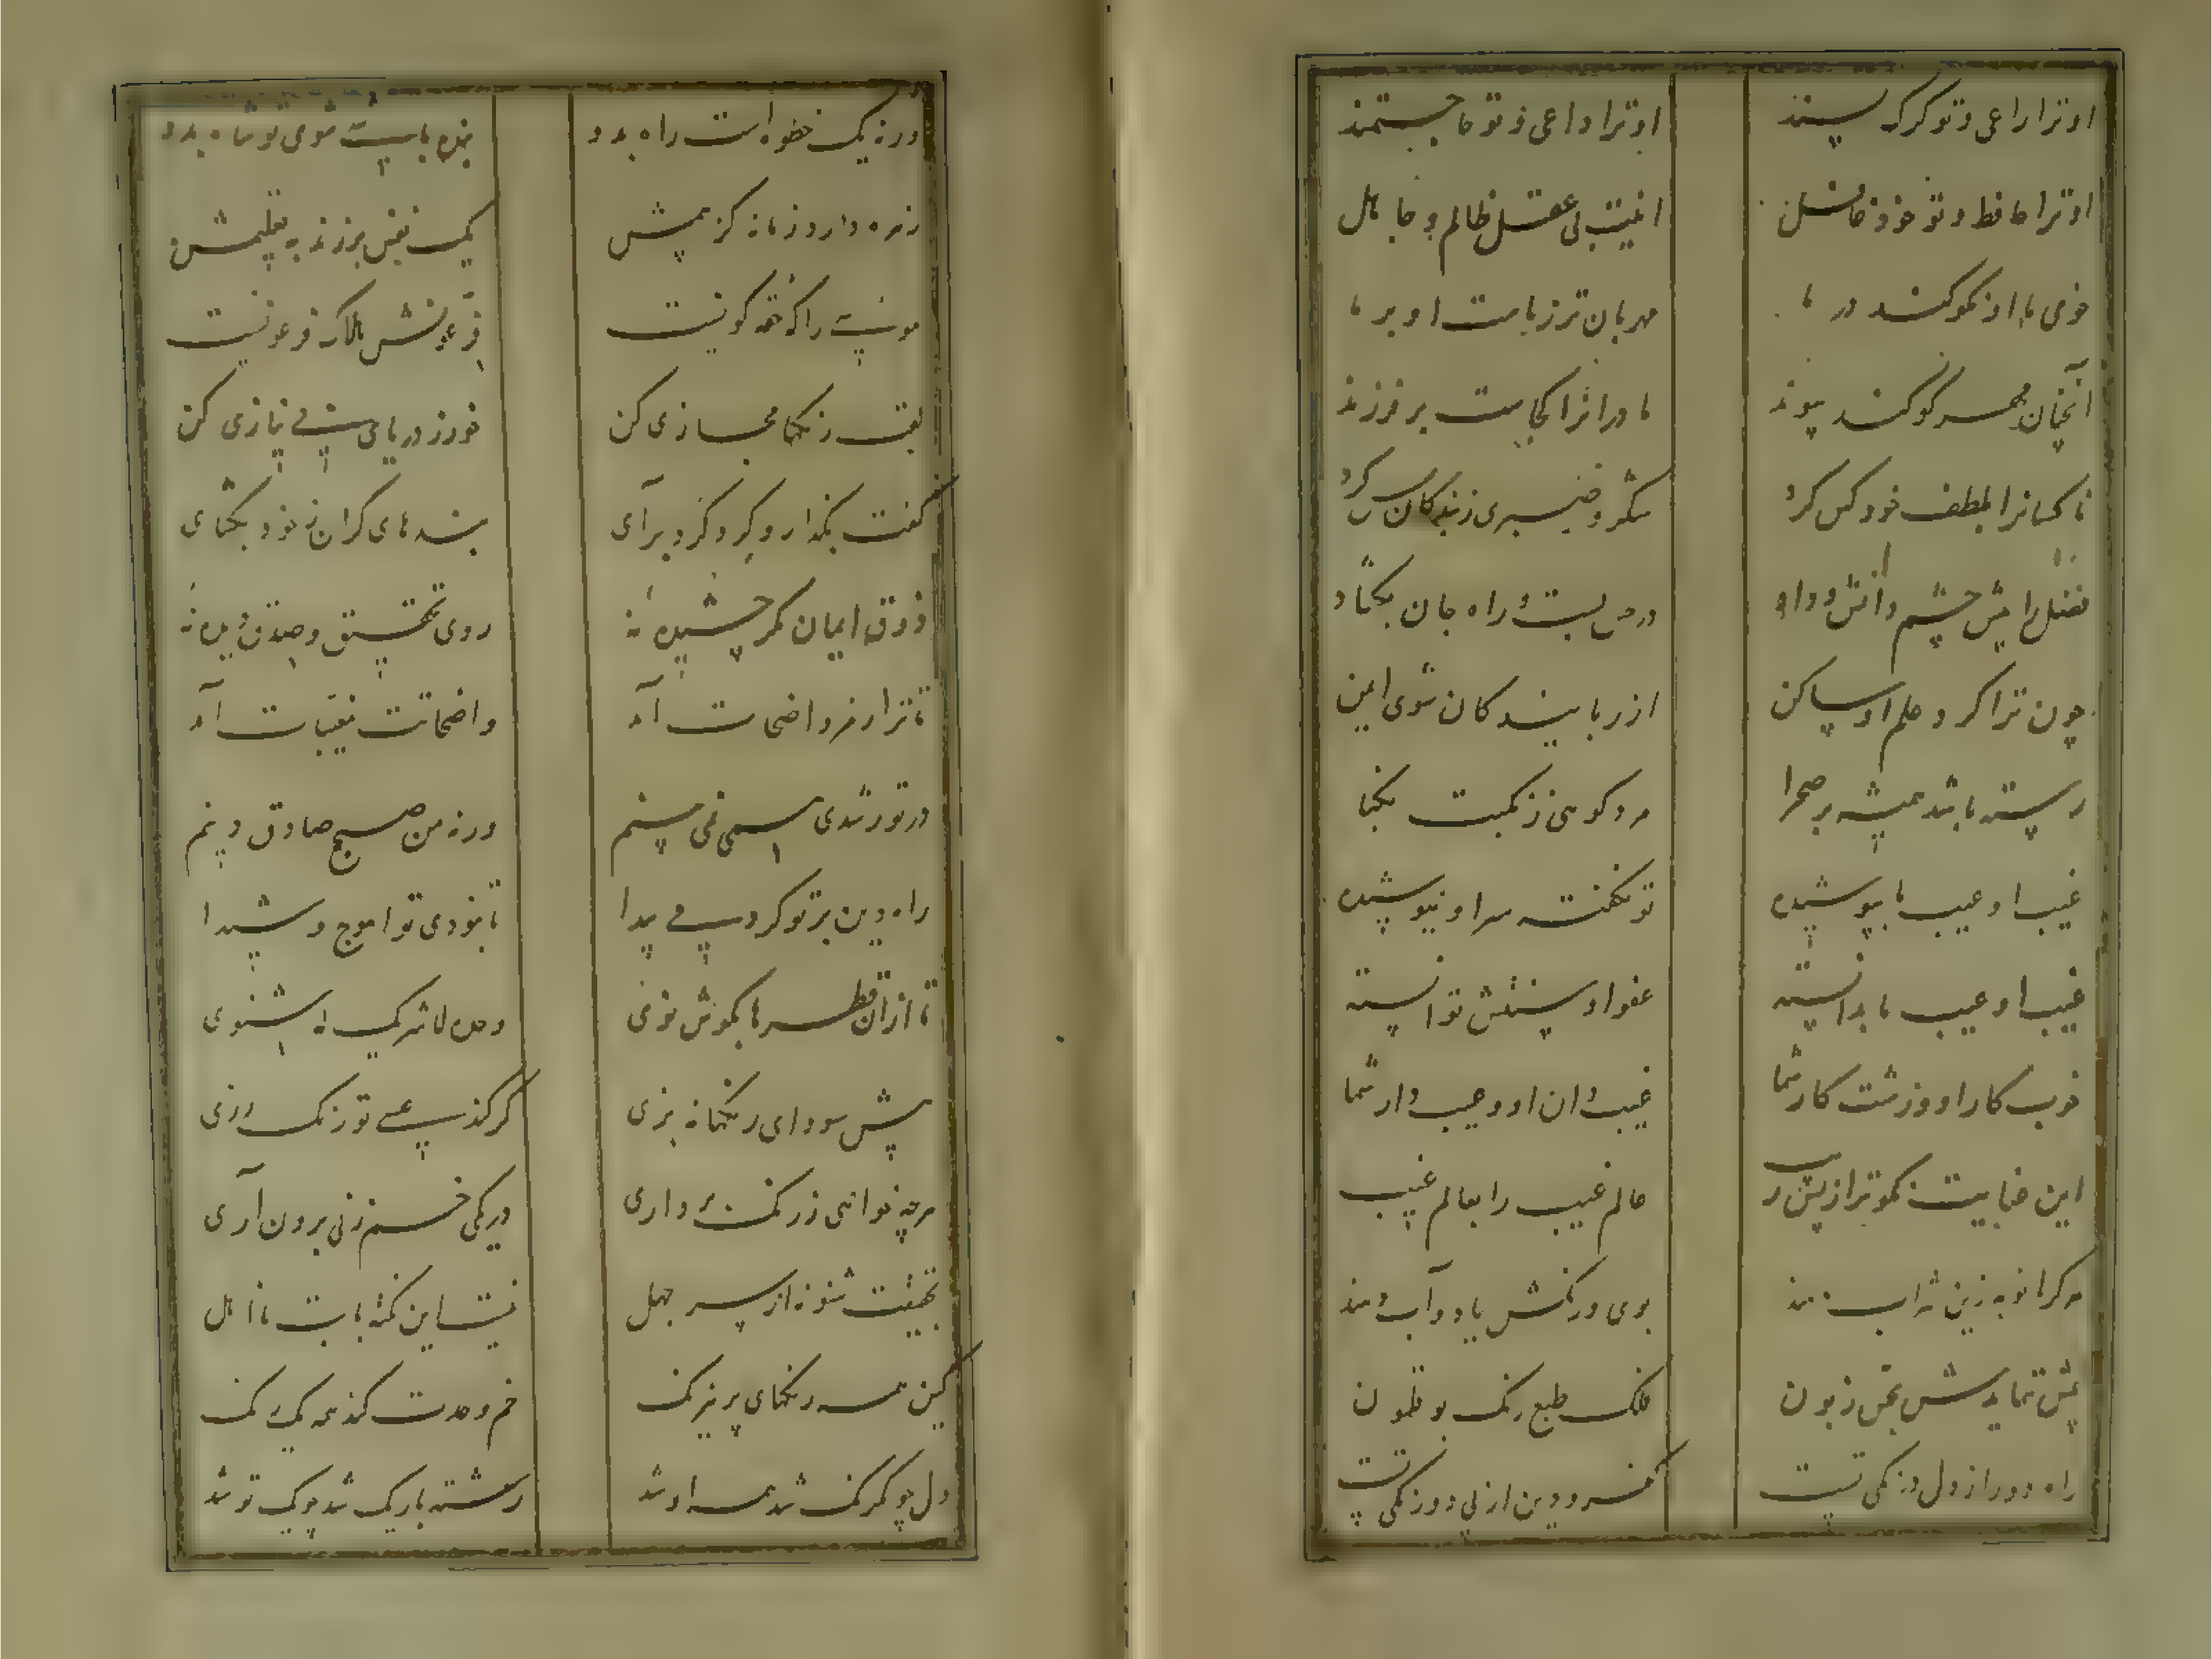 او ترا راعی و تو کرک پسند او ترا داعی و تو حاجتمند
او ترا حافظ و تو خود غافل اینت بی عقل ظالم و جاهل
خوی ما او نکو کند در ما مهربان تر ز ماست او بر ما
آنچنان مهر کو کند پیوند مادرانرا کجاست بر فرزند
ناکسانرا بلطف خود کس کرد شکر و صبری ز بندکان بس کرد
فضل را پیش چشم دانش و داد در حس بست و راه جان بکشاد
چون ترا کرد حلم او ساکن از ربایندکان شوی ایمن
رسته باشد همیشه بر صحرا مرد کوهی ز نکبت نکبا
غیب او عیب ما بپوشیده تو نکفته سر او نیوشیده
غیب او عیب ما بدانسته عفو او شستنش توانسته
خوب کار او و زشت کار شما غیب دان او و عیب دار شما
این عنایت نکوتر از پس ر عالم غیب را بعالم غیب
بوی و رنکش باد و آب دهند
فلک طبع رنک بوقلمون
راه دور از دل درنکی تست کفر و دین از پی دو رنکی تست
ورنه یک خطوه است راه بدو بنده باش شوی تو شاه بدو
زهره دارد زمانه کز بیمش یک نفس برزند به تعلیمش
موسی را که خفته کو نیست فرعونش هلاکه فرعونیست
لقب رنکها مجازی کن خور ز دریای بی نیازی کن
کفت بکذار و کرد کرد برآی بندهای کران ز خود بکشای
ذوق ایمان مکر چشیده نه روی تحقیق و صدق دیده نه
تا ترا رمز واضحات آمد واضحاتت مغیبات آمد
در تو رشدی همی نمی بینم ورنه من صبح صادق دینم
راه دین بر تو کردمی پیدا تا نبودی تو اعوج و شیدا
تا ازان قطرها بکوش نوی وحده لا شریک له شنوی
پیش سودای رنکها نه پزی کر کند عیسی تو رنک رزی
هرچه خواهی ز رنک برداری در یکی خم زنی برون آری
بحقیقت شنو نه از سر جهل نیست این نکته بابت نااهل
کین همه رنکهای پر نیرنک خم وحدت کند همه یک رنک
دل چو یکرنک شد همه او شد رشته باریک شد چو یک تو شد